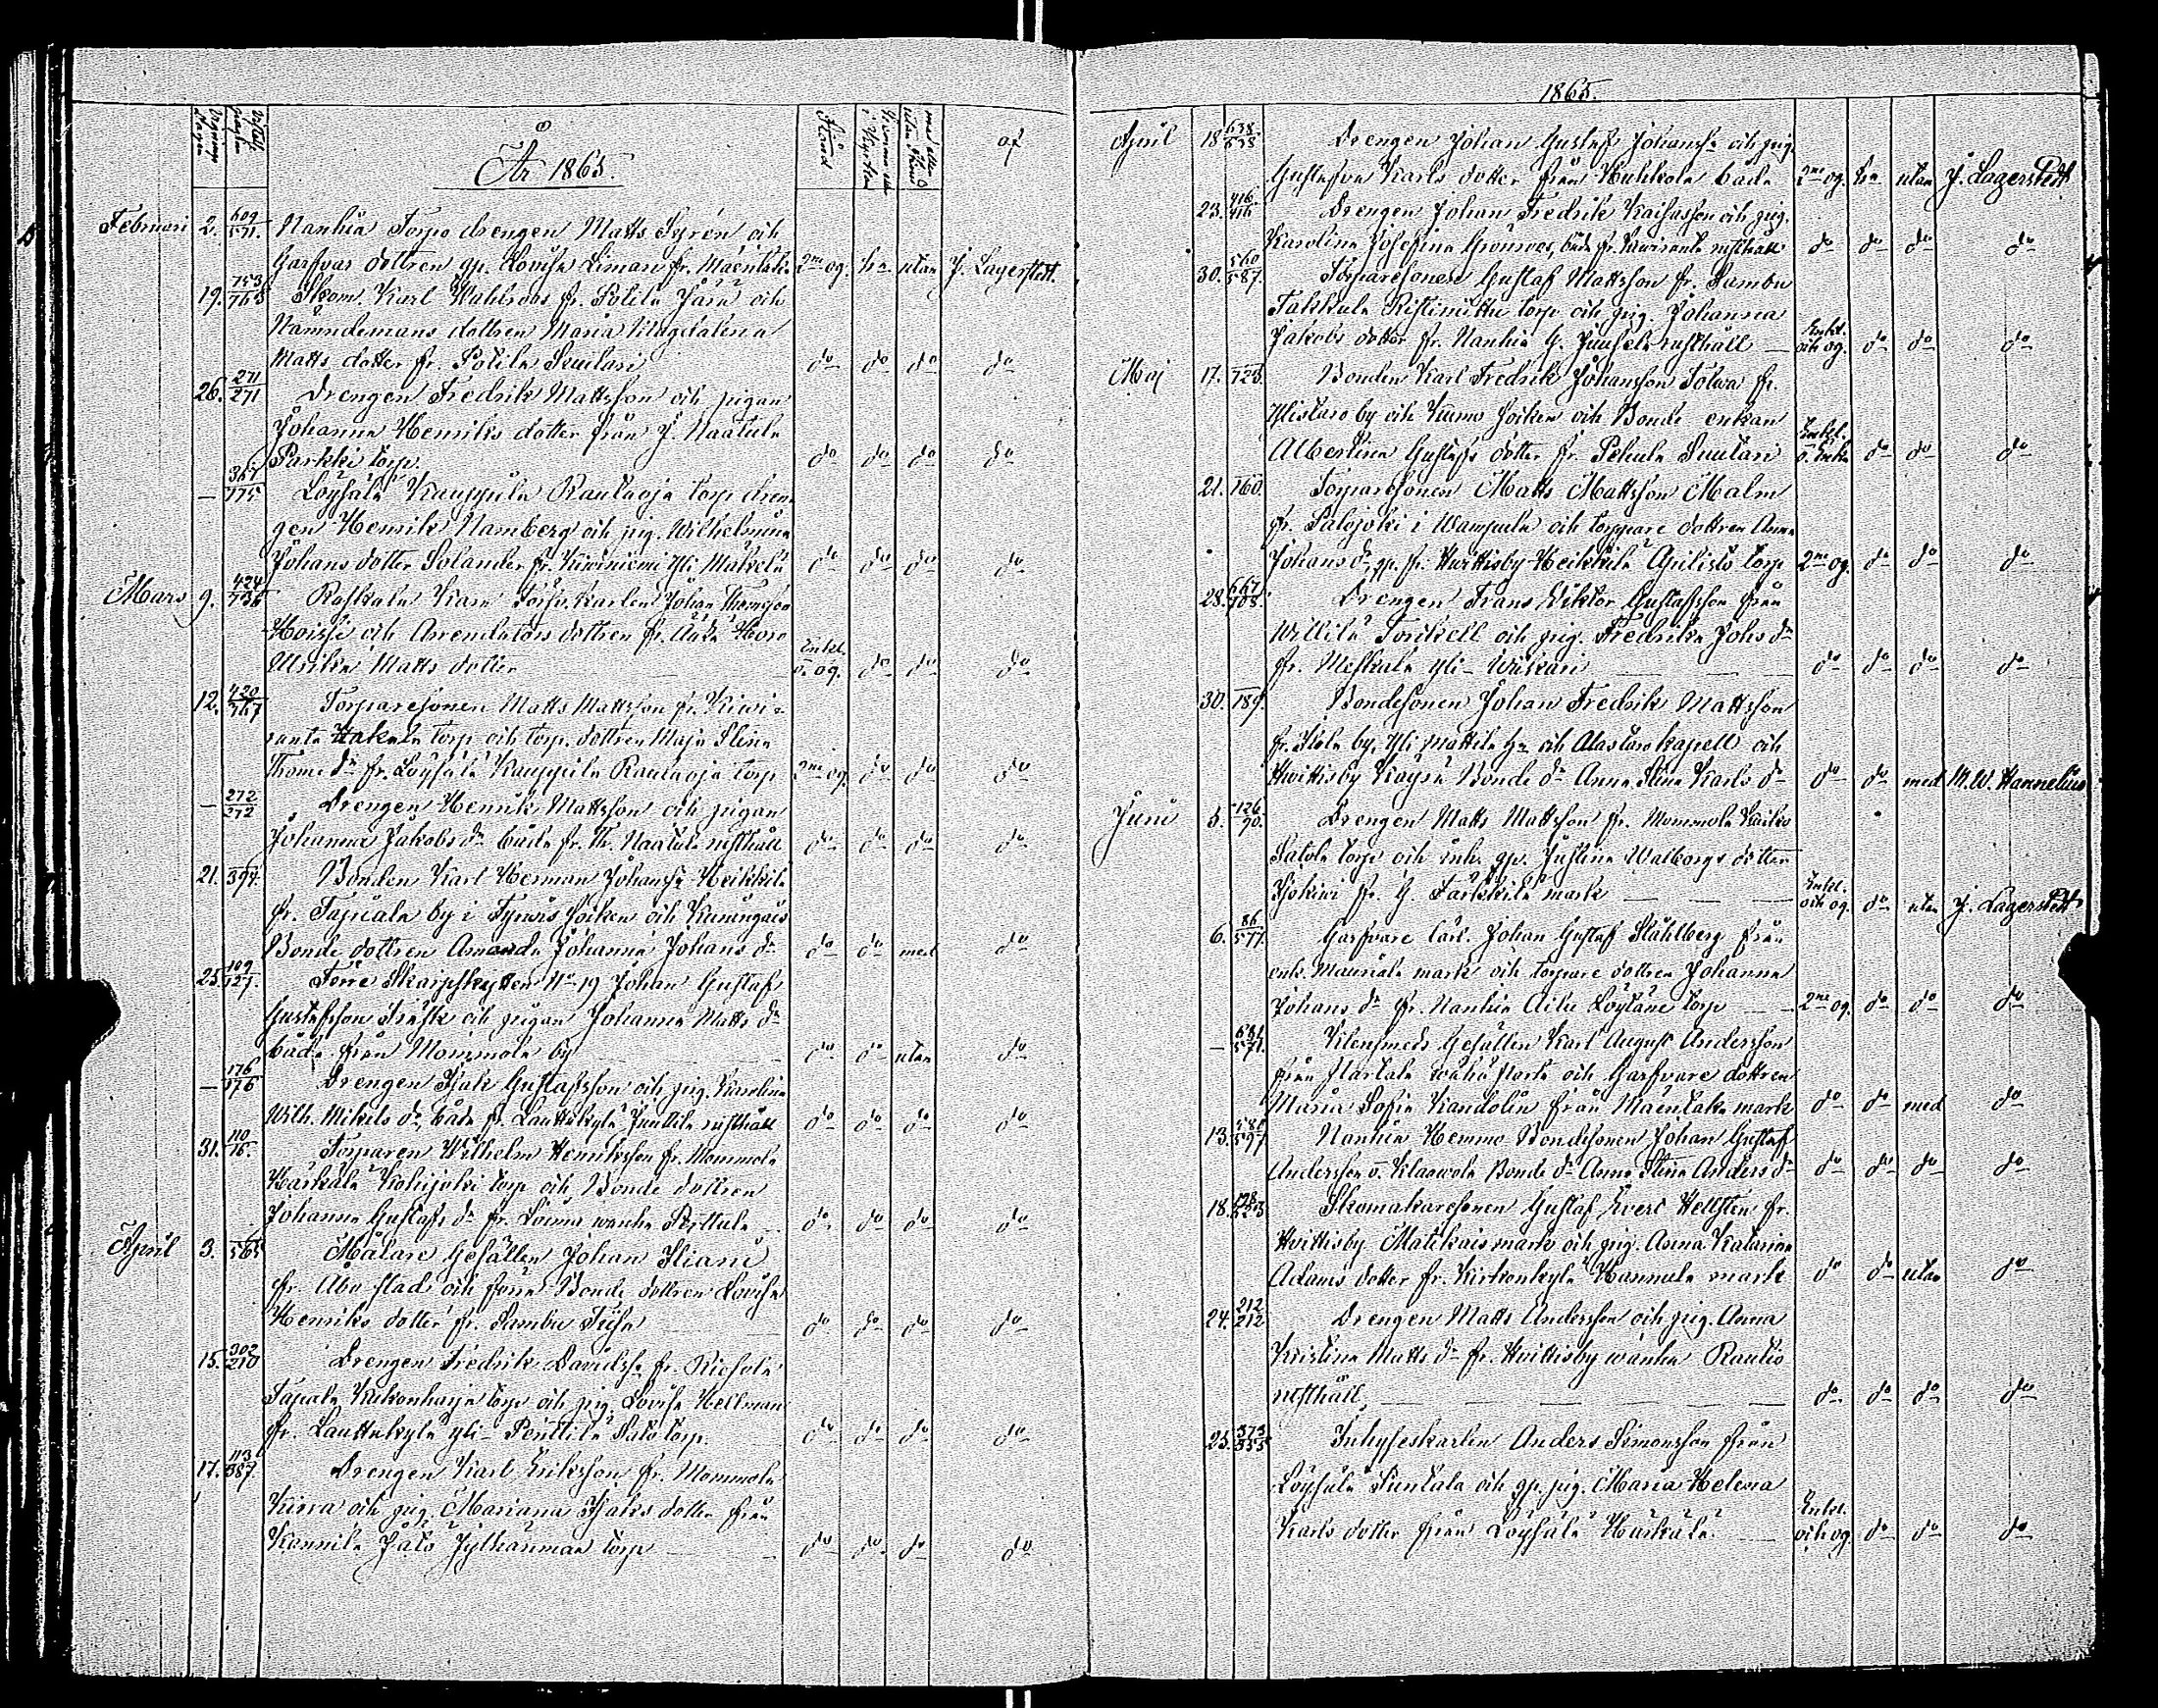 År 1865.
Stånd
af
Februari 2. 609/571. Nanhia Torpo drengen Matts Syrén och
Garfvar dottren gp. Lovisa Liman fr. Mäentaka 2ne og. h-a utan J. Lagerstedt.
19. 753/763 Skom. Karl Wahlroos fr. Potila Järä och
Nämndemans dottren Maria Magdalena
Matts dotter fr. Potila Suutari do do do do
26. 271/271 Drengen Fredrik Mattsson och pigan
Johanna Henriks dotter från J. Naatula
Parkki torp. do do do do
— 367/175 Löysälä Kauppila Rautaoja torp dren-
gen Henrik Namberg och pig. Wilhelmina
Johans dotter Solander fr. Kiviniemi Yli Mäkelä do do do do
Mars 9. 424/736 Raskala Karlen Johan Thomsson
Hoissi och Arrendators dottren fr. Äudä
Ulrika Matts dotter Enkl. o. og. do do do
12. 420/767 Torparesonen Matts Mattsson fr. Kiwi-
ranta Hakala torp och torp. dottren Maja Stina
Thome dr fr. Löysälä Kauppila Rautaoja torp 2ne og. do do do
— 272/272 Drengen Henrik Mattsson och pigan
Johanna Jakobs dr båda fr. Th. Naatula rusthåll do do do do
21. 397. Bonden Karl Herman Johanss. Heikkilä
fr. Tajuala by i Tyrwis socken och Kuningais
Bonde dottren Amanda Johanna Johans dr do do med do
25. 109/127. Förre Skarpskytten No 19 Johan Gustaf
Gustafsson Träsk och pigan Johanna Matts dr
båda från Mommola by do do utan do
— 176/176 Drengen Isak Gustafsson och pig. Karolina
Wilh. Mikels dr, båda fr. Lauttakylä Junttila rusthåll do do do do
31. 110/16. Torparen Wilhelm Henriksson fr. Mommola
Härkälä Kohijoki torp och Bonde dottren
Johanna Gustafs dr fr. Loima wanha Perttula do do do do
April 3. 565 Målare Gesällen Johan Iliani
fr. Åbo stad och förra Bonde dottren Lovisa
Henriks dotter fr. Sambu do do do do
15. 302/210 Drengen Fredrik Davidss. fr. Riesola
Tapala Kukonharja torp och pig. Lovisa Hellman
fr. Lauttakylä yli-Penttilä Salo torp. do do do do
17. 113/387. Drengen Karl Eriksson fr. Mommola
Kiera och pig. Mariana Isaks dotter från
Kannila Jalo Jylhänmaa torp do do do do
1865.
April 18. 638/635 Drengen Johan Gustaf Johanss. och pig.
Gustafva Karls dotter från Huhkola båda 2ne og. h-a utan J. Lagerstedt
23. 416/416 Drengen Johan Fredrik Kaisasson och pig.
Karolina Josefina Grönroos, båda fr. Kiwiranta rusthåll do do do do
30. 560/587. Torparesonen Gustaf Mattsson fr. Sambu
Takkula Ristimäki torp och pig. Johanna
Jakobs dotter fr. Nanhia G. Junsela rusthåll Enkl. och og. do do do
Maj 17. 723. Bonden Karl Fredrik Johansson Tolwa fr.
Ylistaro by och Kumo socken och Bonde enkan
Albertina Gustafs dotter fr. Pehula Suutari Enkl. o. Enka do do do
21. 160. Torparesonen Matts Mattsson Malm
fr. Salojoki i Wampula och torppare dottren Anna
Johans dr gp. fr. Huittisby Heikkilä Apilisto torp 2ne og. do do do
28. 667/108. Drengen Frans Viktor Gustafsson från
Willilä Torkkell och pig. Fredrika Johs dr
fr. Meskala yli-Wäskäri do do do do
30. 189. Bondesonen Johan Fredrik Mattsson
fr. by, Yli Mattila hn och Alastaro kapell och
Hvittisby Köysä Bonde dr Anna Stina Karls dr do do med M. W. Hannelius
Juni 5. 126/90. Drengen Matts Mattsson fr. Mommola Knikko
Satola torp och inh. gp. Justina Walborgs dotter
fr. G. Tarkkila mark Enkl. och og. do utan J. Lagerstedt
6. 86/577. Garfvare lärl. Johan Gustaf Ståhlberg från
Mauriala mark och torpare dottren Johanna
Johans dr fr. Nanhia Aihe Löytäne torp 2ne og. do do do
— 631/571. Klensmeds Gesällen Karl August Andersson
från wähä och Garfvare dottren
Maria Sofia Kandolin från Mäentaka mark do do med do
13. 581/597 Nanhia Hemmo Bondesonen Johan Gustaf
Andersson o. Klaawola Bonde dr Anna Stina Anders dr do do do do
18. Skomakaresonen Gustaf Evert Hellstén fr.
Hvittisby Matikais mark och pig. Anna Katarina
Adams dotter fr. Kirkonkylä Hannula mark do do utan do
24. 212/212 Drengen Matts Andersson och pig. Anna
Kristina Matts dr fr. Hvittisby wanha Rautio
rusthåll, do do do do
25. 373/355 Inhyseskarlen Anders Simonsson från
Löysälä Suntala och gp. pig. Maria Helena
Karls dotter från Löysälä Härkälä. Enkl. och og. do do do